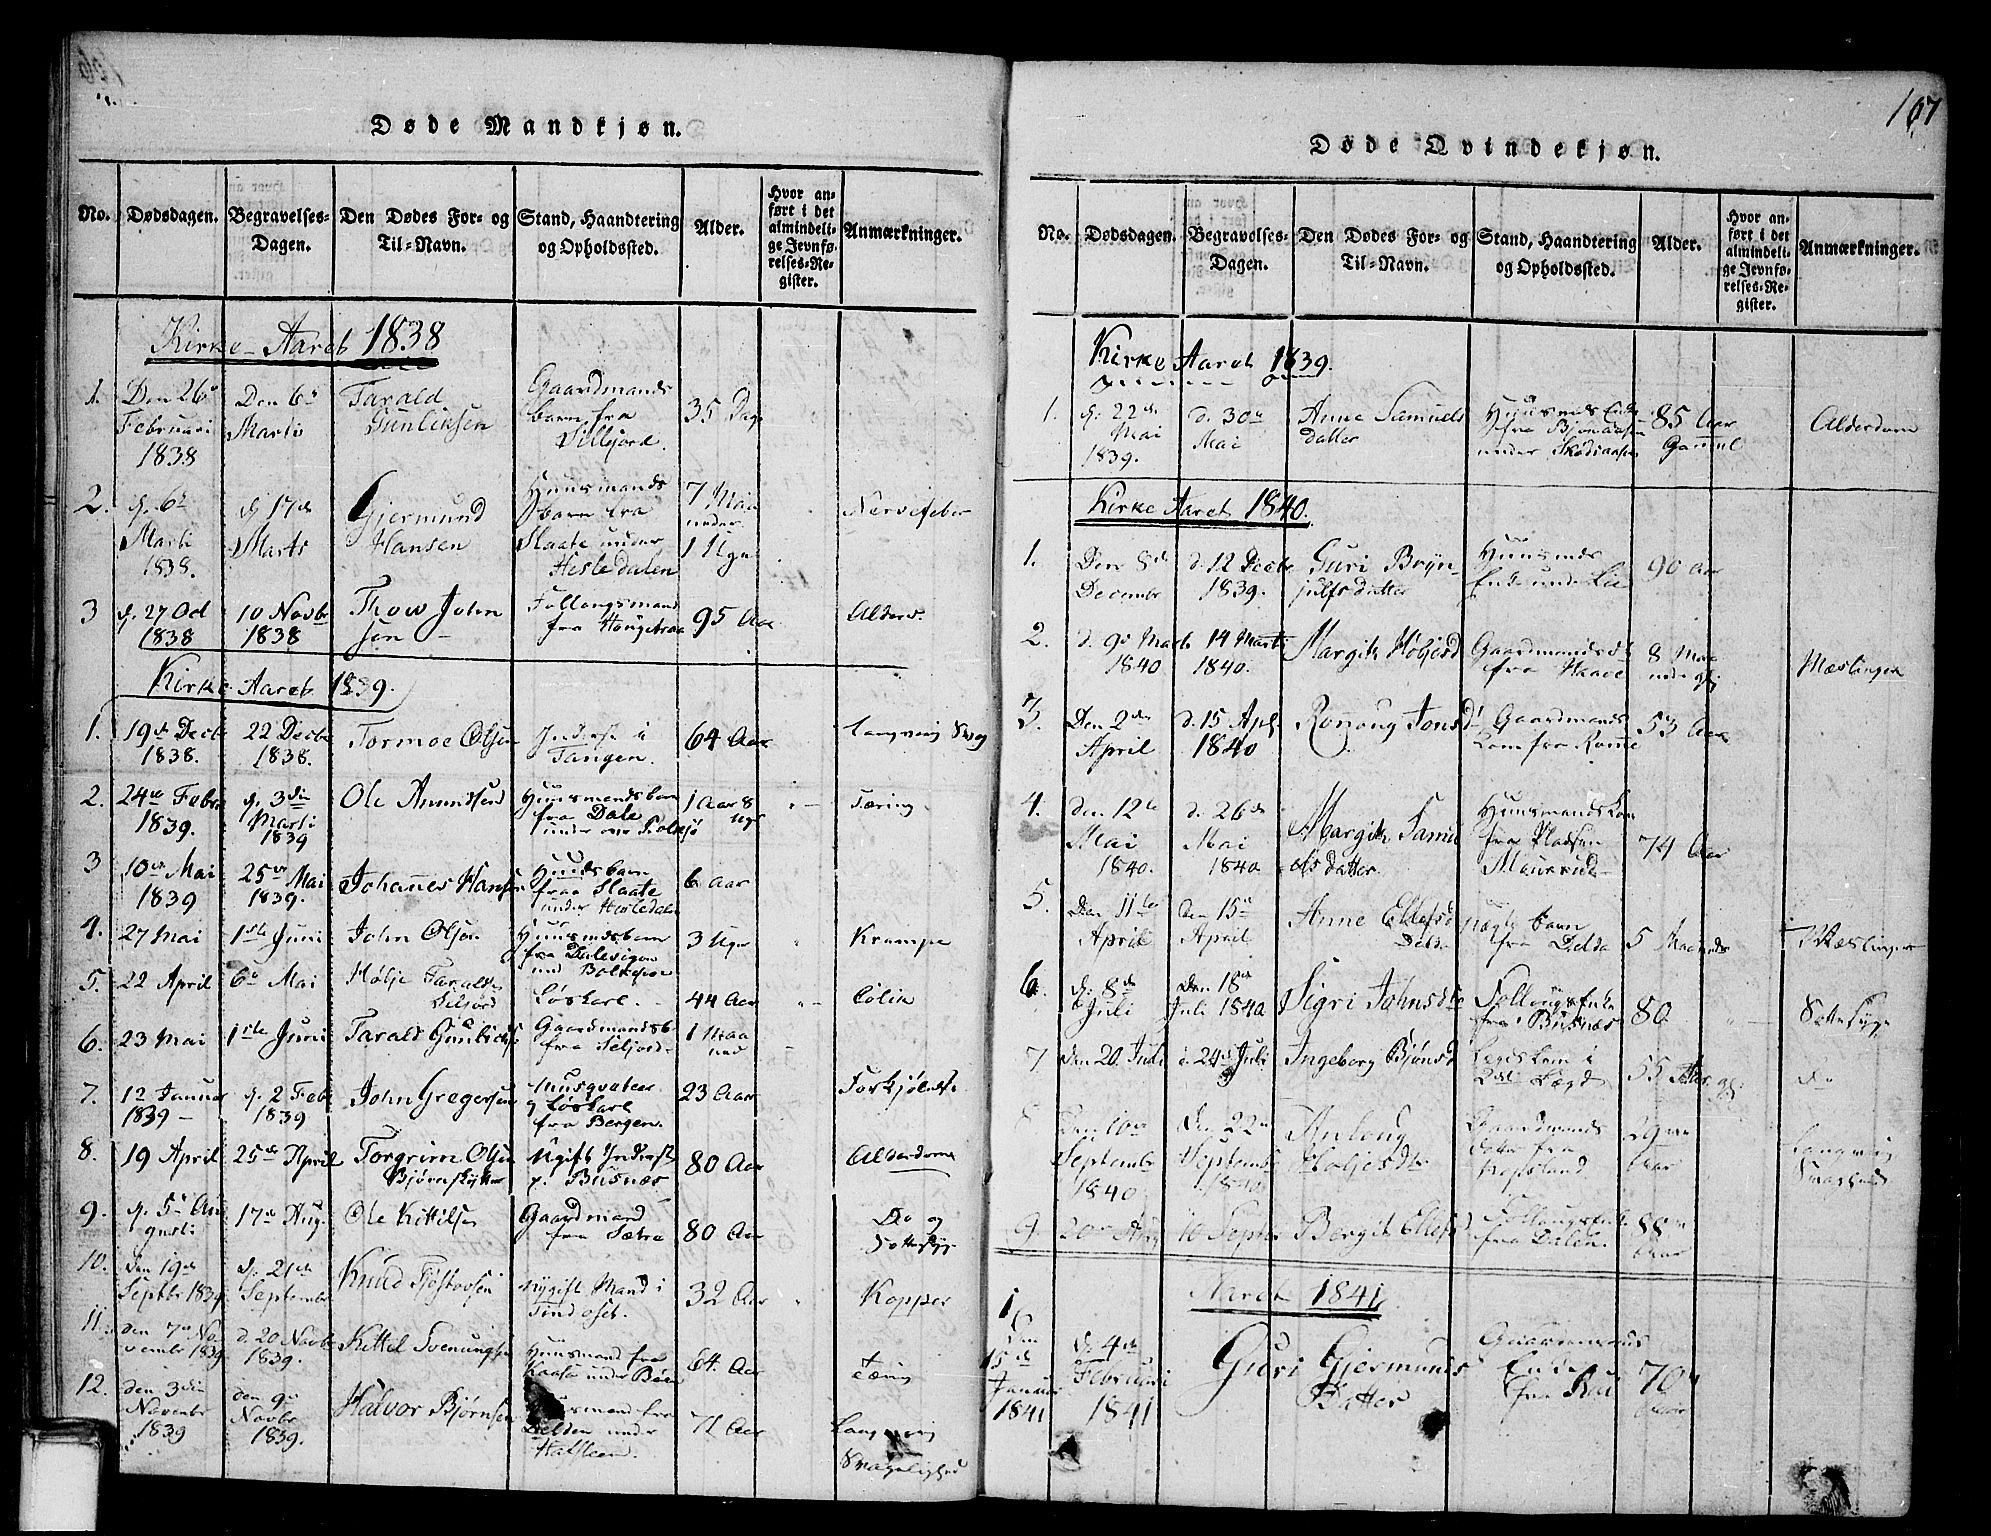 107
Døde Mandkjøn.
No. Dødsdagen. Begravelses-Dagen. Den Dødes For- og Til-Navn. Stand, Haandtering og Opholdssted. Alder. Hvor anført i det almindelige Jevnførelses-Register. Anmærkninger.
Kirke-Aaret 1838
1. Den 26
Februari
1838
Den 6
Marti
Tarald
Gunliksen
Gaardmands
barn fra
Sillejord.
35 Dag
2. d. 6
Marti
1838.
d 17
Marts
Gjermund
Hansen
Huusmands
barn fra
Slaate under
Hesledalen
7 Maa
under
1 Ugn
Nervefeber
3 d. 27 Oct
1838
10 Novbr
1838
Thow John
sen
Follougsmand
fra
95 Aar
Alderd.
Kirke Aaret 1839.
1. 19 Decbr
1838.
22 Decbr
1838.
Tormoe Olsen
Inderst i
Tangen.
64 Aar
Langvarig Svag
2. 24 Febr
1839.
d. 3
Marti
1839
Ole Amundsen
Huusmandsbarn
fra Dale
under
1 Aar 8
Ugr
Tæring
3 10 Mai
1839
25 Mai
1839.
Johannes Hansen
Huusbarn
fraa Slaate
under Hesledalen
6 Aar
4. 27 Mai
1ste Juni
John Olsen
Huusmdsbarn
fra Dalsvigen
und
3 Uger
Krampe
5. 22 April
6 Mai
Hølje Taralds
Siljord
Løskarl.
44 Aar
Colik
6. 23 Mai
1ste Juni
Tarald Gunlicks
Gaardmandsb
fra Siljord
1 Maa
ned
7. 12 Januar
1839
d. 2 Febr
1839
John Gregersen
Musqvateer
og Løskarl
fra Bergen.
23 Aar
Forkjølelse
8. 19 April
25 April
Torgrim Olsen
Bjørnskytter
Ugift Inderst
p. Busnæs
80 Aar
Alderdom
9. d. 5 Au
gusti
17 Aug.
Ole Kittilsen
Gaardmand
fra Sætre
80 Aar
Do og
Sottesyge
10. den 19
Septbr 1839
d. 21
Septembr
Knud Tjøstovsen
Nygift Mand i
Tindoset.
32 Aar
Kopper
11. den 7 No
vembr 1839
d. 20 Novbr
1839.
Kittel Svenungsen
Huusmand fra
Kaasa under Bøen
64. Aar
Tæring
12. den 3
Novembr
1839
den 9
Novbr
1839.
Halvor Bjørnsen
Huusmand fra
Delden under
71 Aar
Langvarig
Svagelighed
Døde Qvindekjøn.
No. Dødsdagen. Begravelses-Dagen. Den Dødes For- og Til-Navn. Stand, Haandtering og Opholdssted. Alder. Hvor anført i det almindelige Jevnførelses-Register. Anmærkninger.
Kirke Aaret 1839.
1. d. 22
Mai
1839.
d. 30
Mai
Anne Samuels
datter
Huusmds Enke
fra Bjønaasen
under Skodsaasen
85 Aar
Gammel
Alderdom
Kirke Aaret 1840.
1. Den 8
Decembr
d. 12 Decbr
1839.
Guri Bryn-
julfsdatter
Huusmds
Enke under Lie
90 Aar
2. d. 9 Marts
1840
14 Marti
1840.
Margith Høljesd
Gaardmands
fra Haave
8 Maa
Mæslinger
3. Den 2
April
d. 15 Apl
1840
Ronnoug Jonsd
Gaardmands
Kone fra Romme
53 Aar
4. den 12
Mai
1840.
d. 26
Mai
1840
Margith Samu
els datter
Huusmandskone
fra Pladsen
Maurrud
74 Aar
5. Den 11
April
den 15
April
Anne Ellefsd
Delda
uægte barn
fra Delda
5 Maaneds
Mæslinger
6. d. 8
Juli
Den 18
Juli 1840
Sigri Johnsdtr
Follougsenke
fra Busnæs
80
Sottesyge
7 den 20 Juli
d 24 Juli
Ingeborg Bjønsd
Lægdskone i
Lægd
55 Aar gl.
do
8 Den 10
Septembr
1840
den 22
Septembr
1840
Anloug
Høljesdtr
Gaardmands
29
Aar
Langvarig
Svaghed
9. 20 Aug
10 Septbr
Bergith Ellefsd
Follougsenke
fra Dalen.
88
Aar
Aaret 1841
1 Den
15
Januar
1841
d. 4
Februari
1841
Guri Gjermunds
Datter
Gaardmands
Enke
fra Rui
70
Aar